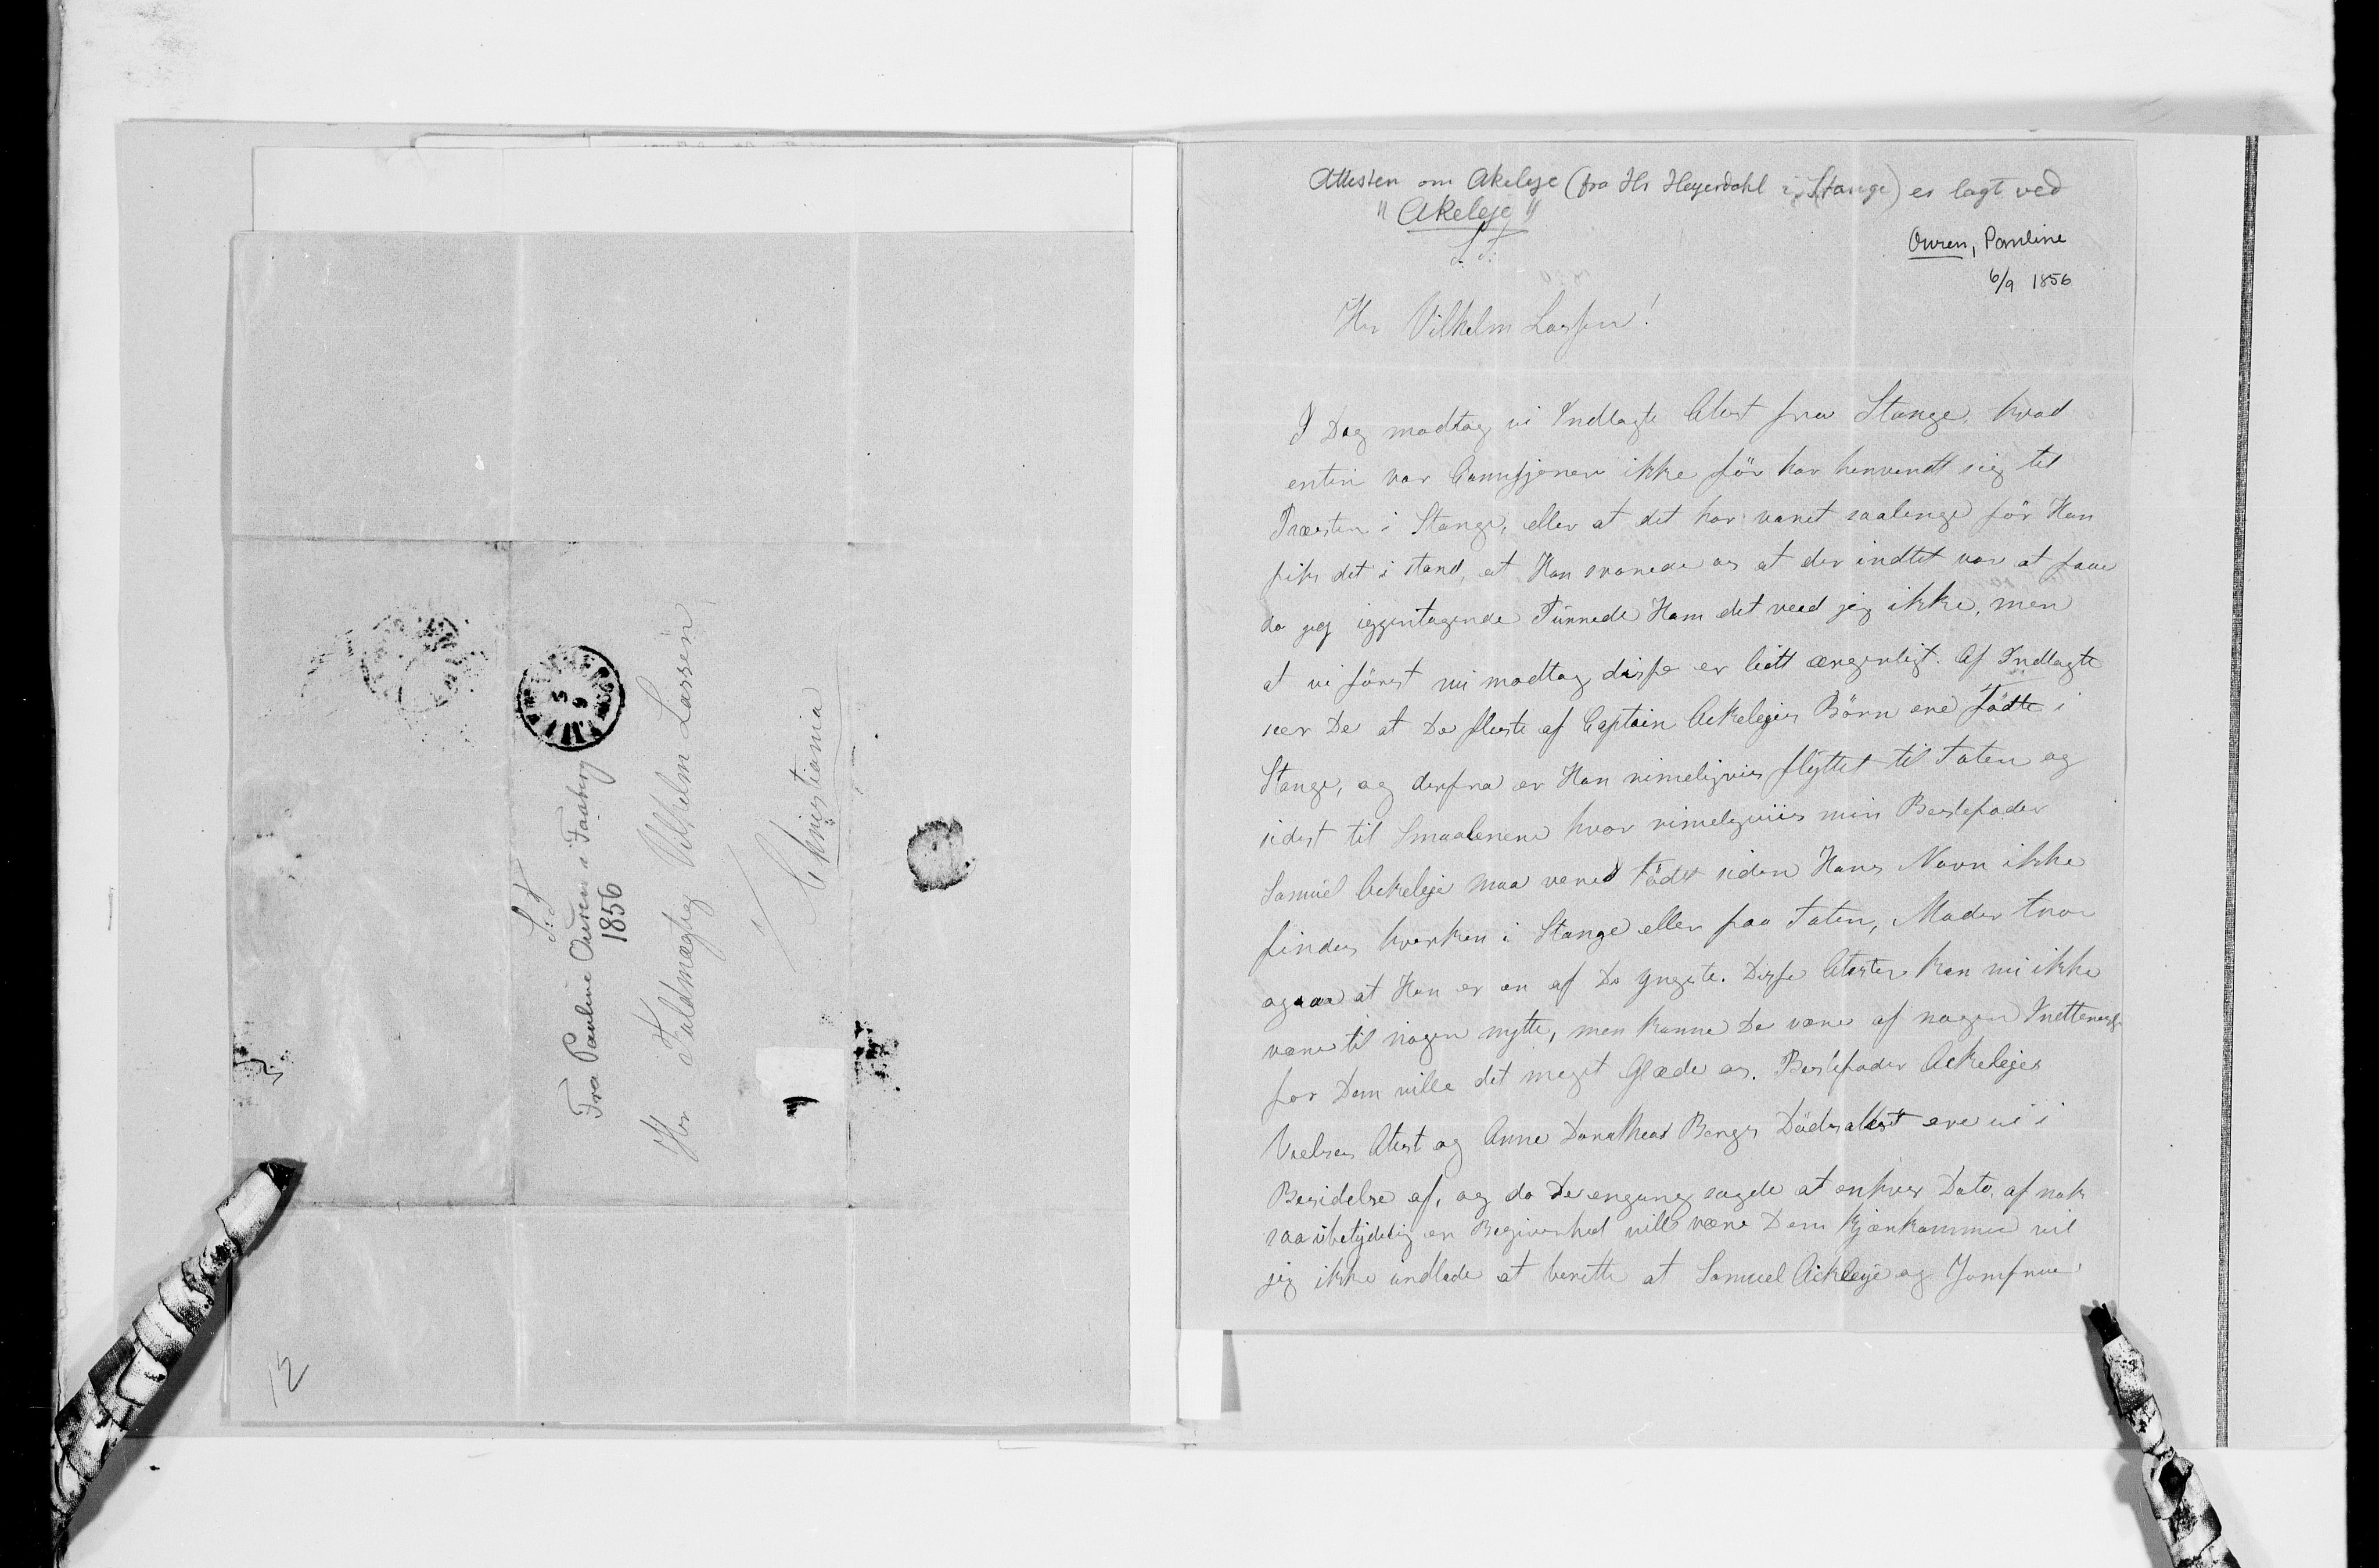 S. T.
Fra Pauline Owren i Faaberg
1856
Hr Fuldmægtig Vilhelm Lassen
Christiania
5
9
12
Attesten om Akeleje (fra Hr Heyerdahl i Stange) er lagt ved
"Akeleje"
S. T.
Owren, Pauline
6/9 1856
Hr Vilhelm Lassen!
I Dag modtog vi Indlagte Atest fra Stange, hvad
enten vor Comisjoner ikke før har henvendt sig til
Præsten i Stange, eller at det har varet saalenge før Han
fik det i stand, at Han svarede os at der indtet var at faae
da jeg iggentagende Purrede Ham det veed jeg ikke, men
at vi först nu modtog disse er lidt ærgerligt. Af Indlagte
seer De at De fleste af Captain Ackelejes Börn ere födte i
Stange, og derfra er Han rimeligvis flyttet til Toten og
sidst til Smaalenene hvor rimeligviis min Bestefader
Samuel Ackeleje maa være födt siden Hans Navn ikke
findes hverken i Stange eller paa Toten, Moder troer
ogsaa at Han er en af De yngste. Disse Atester kan nu ikke
være til nogen nytte, men kunne De være af nogen Interesse
for Dem ville det meget Glæde os. Bestefader Ackelejes
Vielses Atest og Anne Dorotheas Bergs Dödsattest ere vi i
Besidelse af, og da De engang sagde at enhver Dato af nok
saa übetydelig en Begivenhed ville være Dem kjærkommen vil
jeg ikke undlade at berette at Samuel Ackleje og Jomfrue